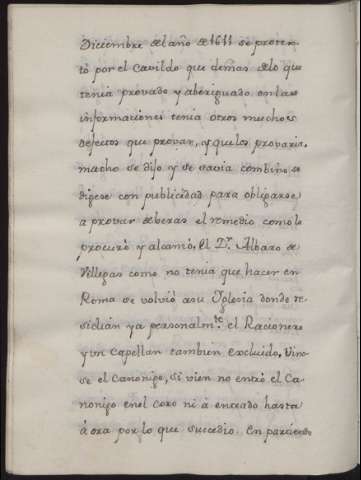 Diciembre del año de 1611 se protex-
tó por el Cavildo que demas de lo que
tenia provado y aberiguado en las
informaciones tenia otros muchos
defectos que provar, y que los provaria.
mucho se dijo y se savia combino, se
digese con publicidad para obligarse
a provar deberas el remedio como lo
procuró y alcanzó, el D.r Albaro de
Villegas como no tenia que hacer en
Roma se volvió a su Yglesia donde re-
sidian ya personalm.te el Racionero
y un Capellan tambien excluido. Vino-
se el Canonigo, si vien no entró el Ca-
nonigo en el coro ni á entrado hasta
á ora por lo que sucedio. En parciendo